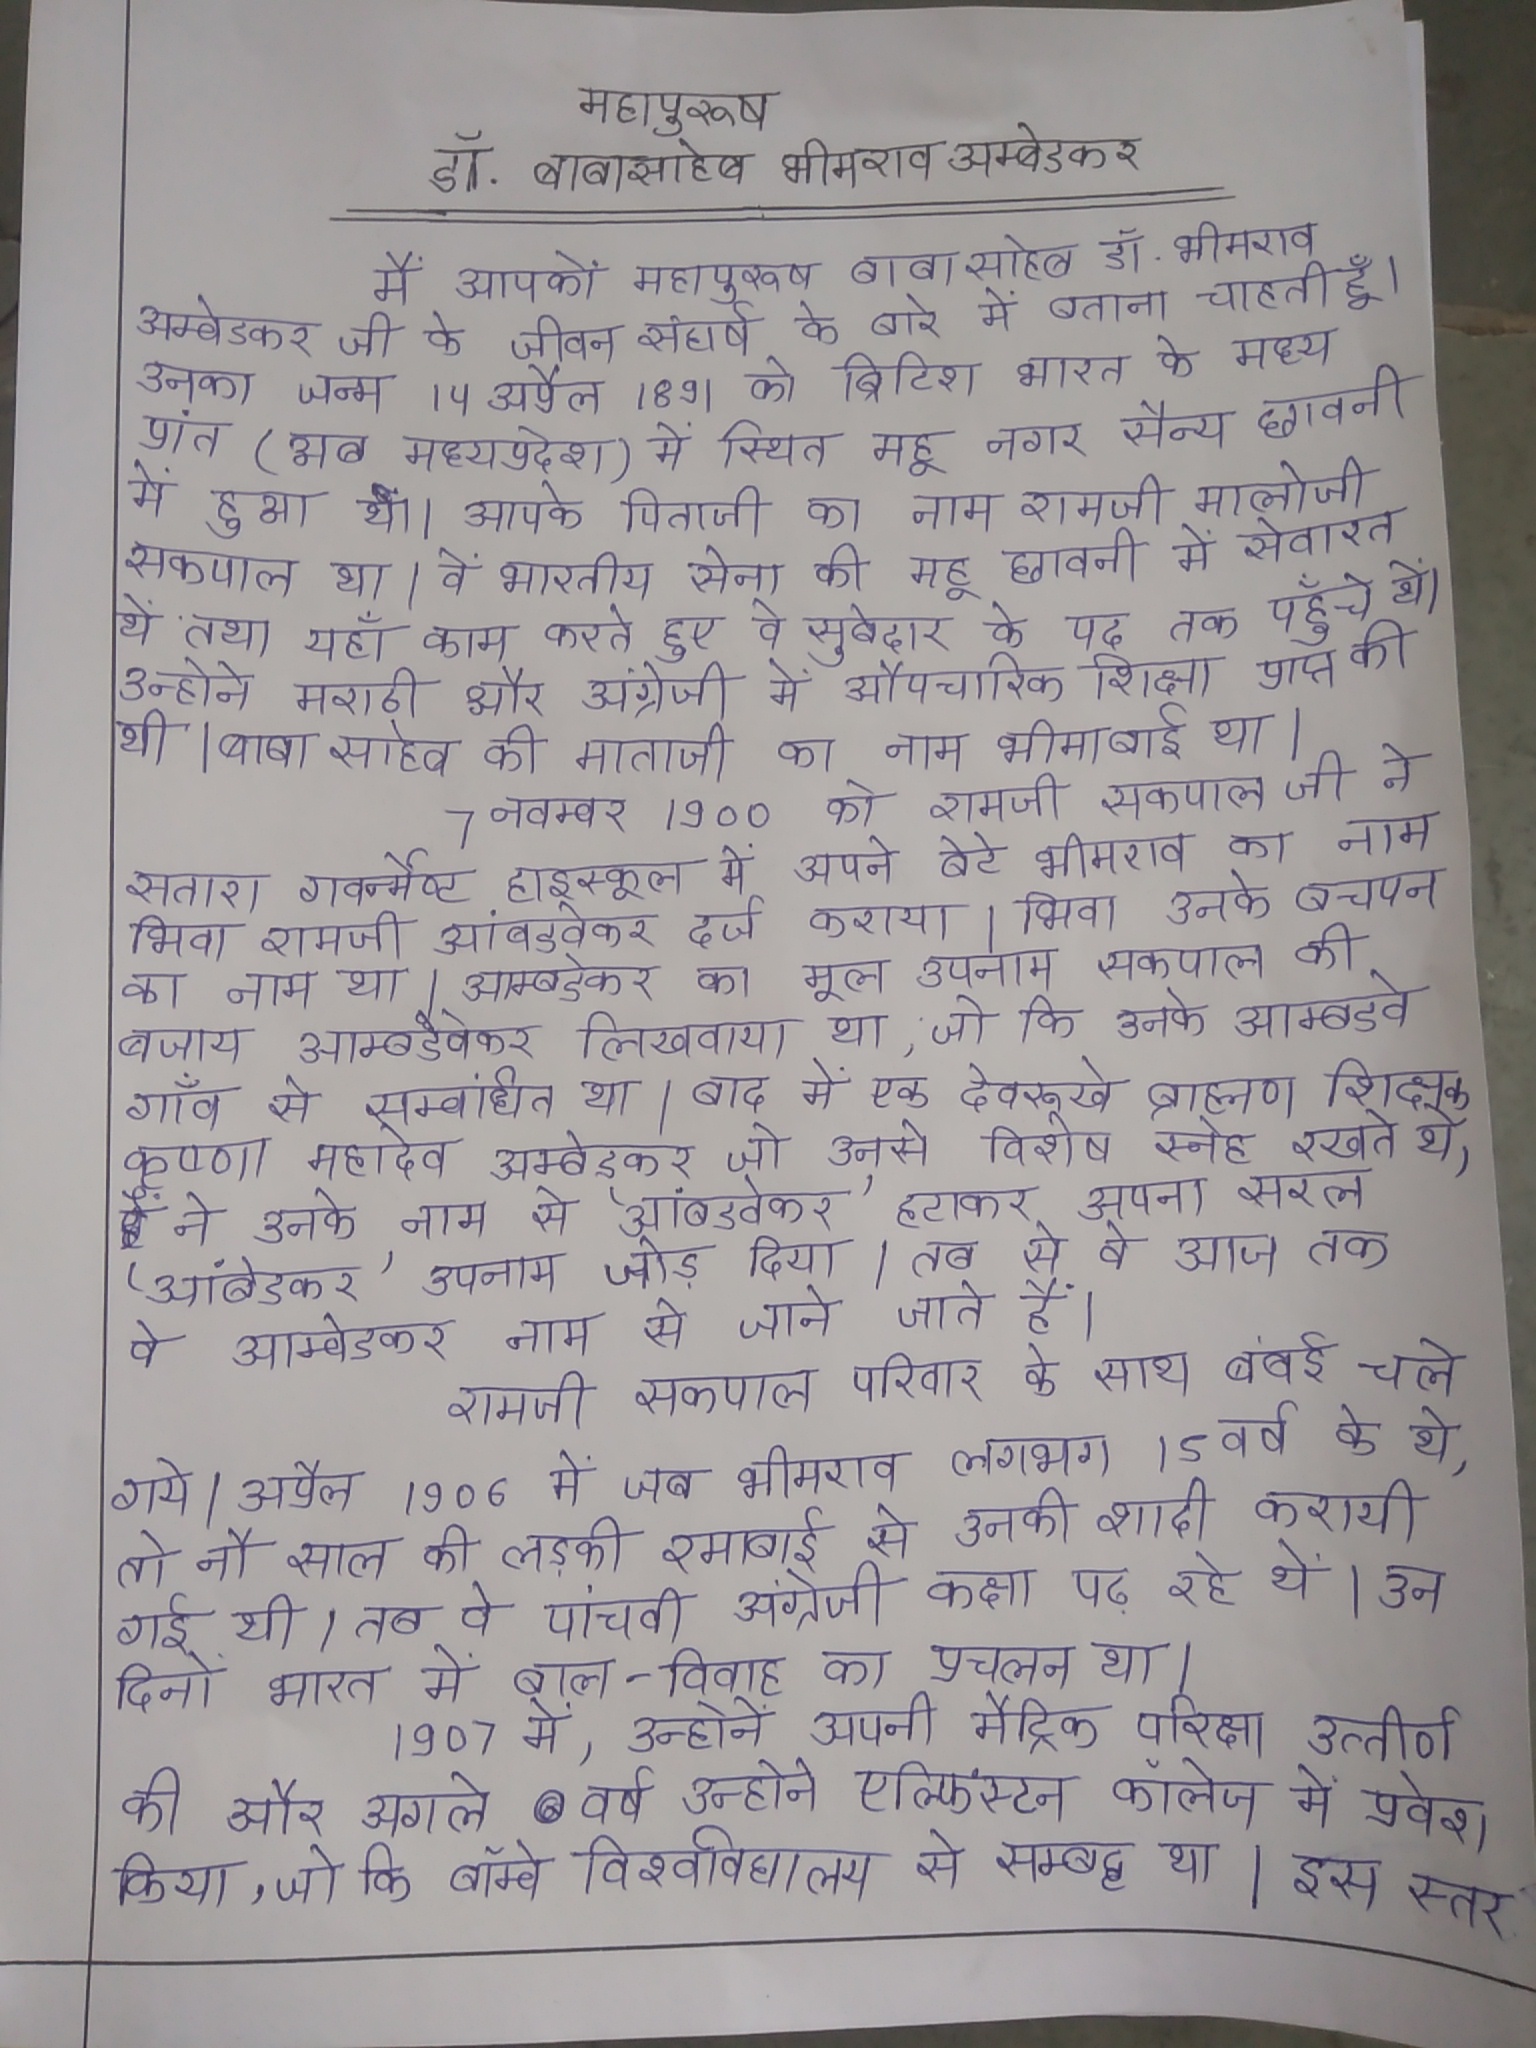 महापुरूष
डॉ. बाबासाहेब भीमराव अम्बेडकर
मैं आपकों महापुरूष बाबासाहेब डॉ. भीमराव
अम्बेडकर जी के जीवन संघर्ष के बारे में बताना चाहती हूँ।
उनका जन्म 14 अप्रैल 1891 को ब्रिटिश भारत के मध्य
प्रांत (अब मध्यप्रदेश) में स्थित महू नगर सैन्य छावनी
में हुआ था। आपके पिताजी का नाम रामजी मालोजी
सकपाल था। वें भारतीय सेना की महू छावनी में सेवारत
थें तथा यहाँ काम करते हुए वे सुबेदार के पद तक पहुँचे थें।
उन्होने मराठी और अंग्रेजी में औपचारिक शिक्षा प्राप्त की
थी। बाबा साहेब की माताजी का नाम भीमाबाई था।
7 नवम्बर 1900 को रामजी सकपाल जी ने
सतारा गवर्न्मेण्ट हाइस्कूल में अपने बेटे भीमराव का नाम
भिवा रामजी आंबडवेकर दर्ज कराया। भिवा उनके बचपन
का नाम था। आम्बडेकर का मूल उपनाम सकपाल की
बजाय आम्बडवेकर लिखवाया था, जो कि उनके आम्बडवे
गाँव से सम्बांधित था। बाद में एक देवरूखे ब्राह्मण शिक्षक
कृष्णा महादेव अम्बेडकर जो उनसे विशेष स्नेह रखते थे,
ने उनके नाम से 'आंबडवेकर' हटाकर अपना सरल
'आंबेडकर' उपनाम जोड़ दिया। तब से वे आज तक
वे आम्बेडकर नाम से जाने जाते हैं।
रामजी सकपाल परिवार के साथ बंबई चले
गये। अप्रैल 1906 में जब भीमराव लगभग 15 वर्ष के थे,
तो नौ साल की लड़की रमाबाई से उनकी शादी करायी
गई थी। तब वे पांचवी अंग्रेजी कक्षा पढ़ रहे थें। उन
दिनों भारत में बाल-विवाह का प्रचलन था।
1907 में, उन्होनें अपनी मैट्रिक परिक्षा उत्तीर्ण
की और अगले वर्ष उन्होने एल्फिंस्टन कॉलेज में प्रवेश
किया, जो कि बॉम्बे विश्वविद्यालय से सम्बद्ध था। इस स्तर